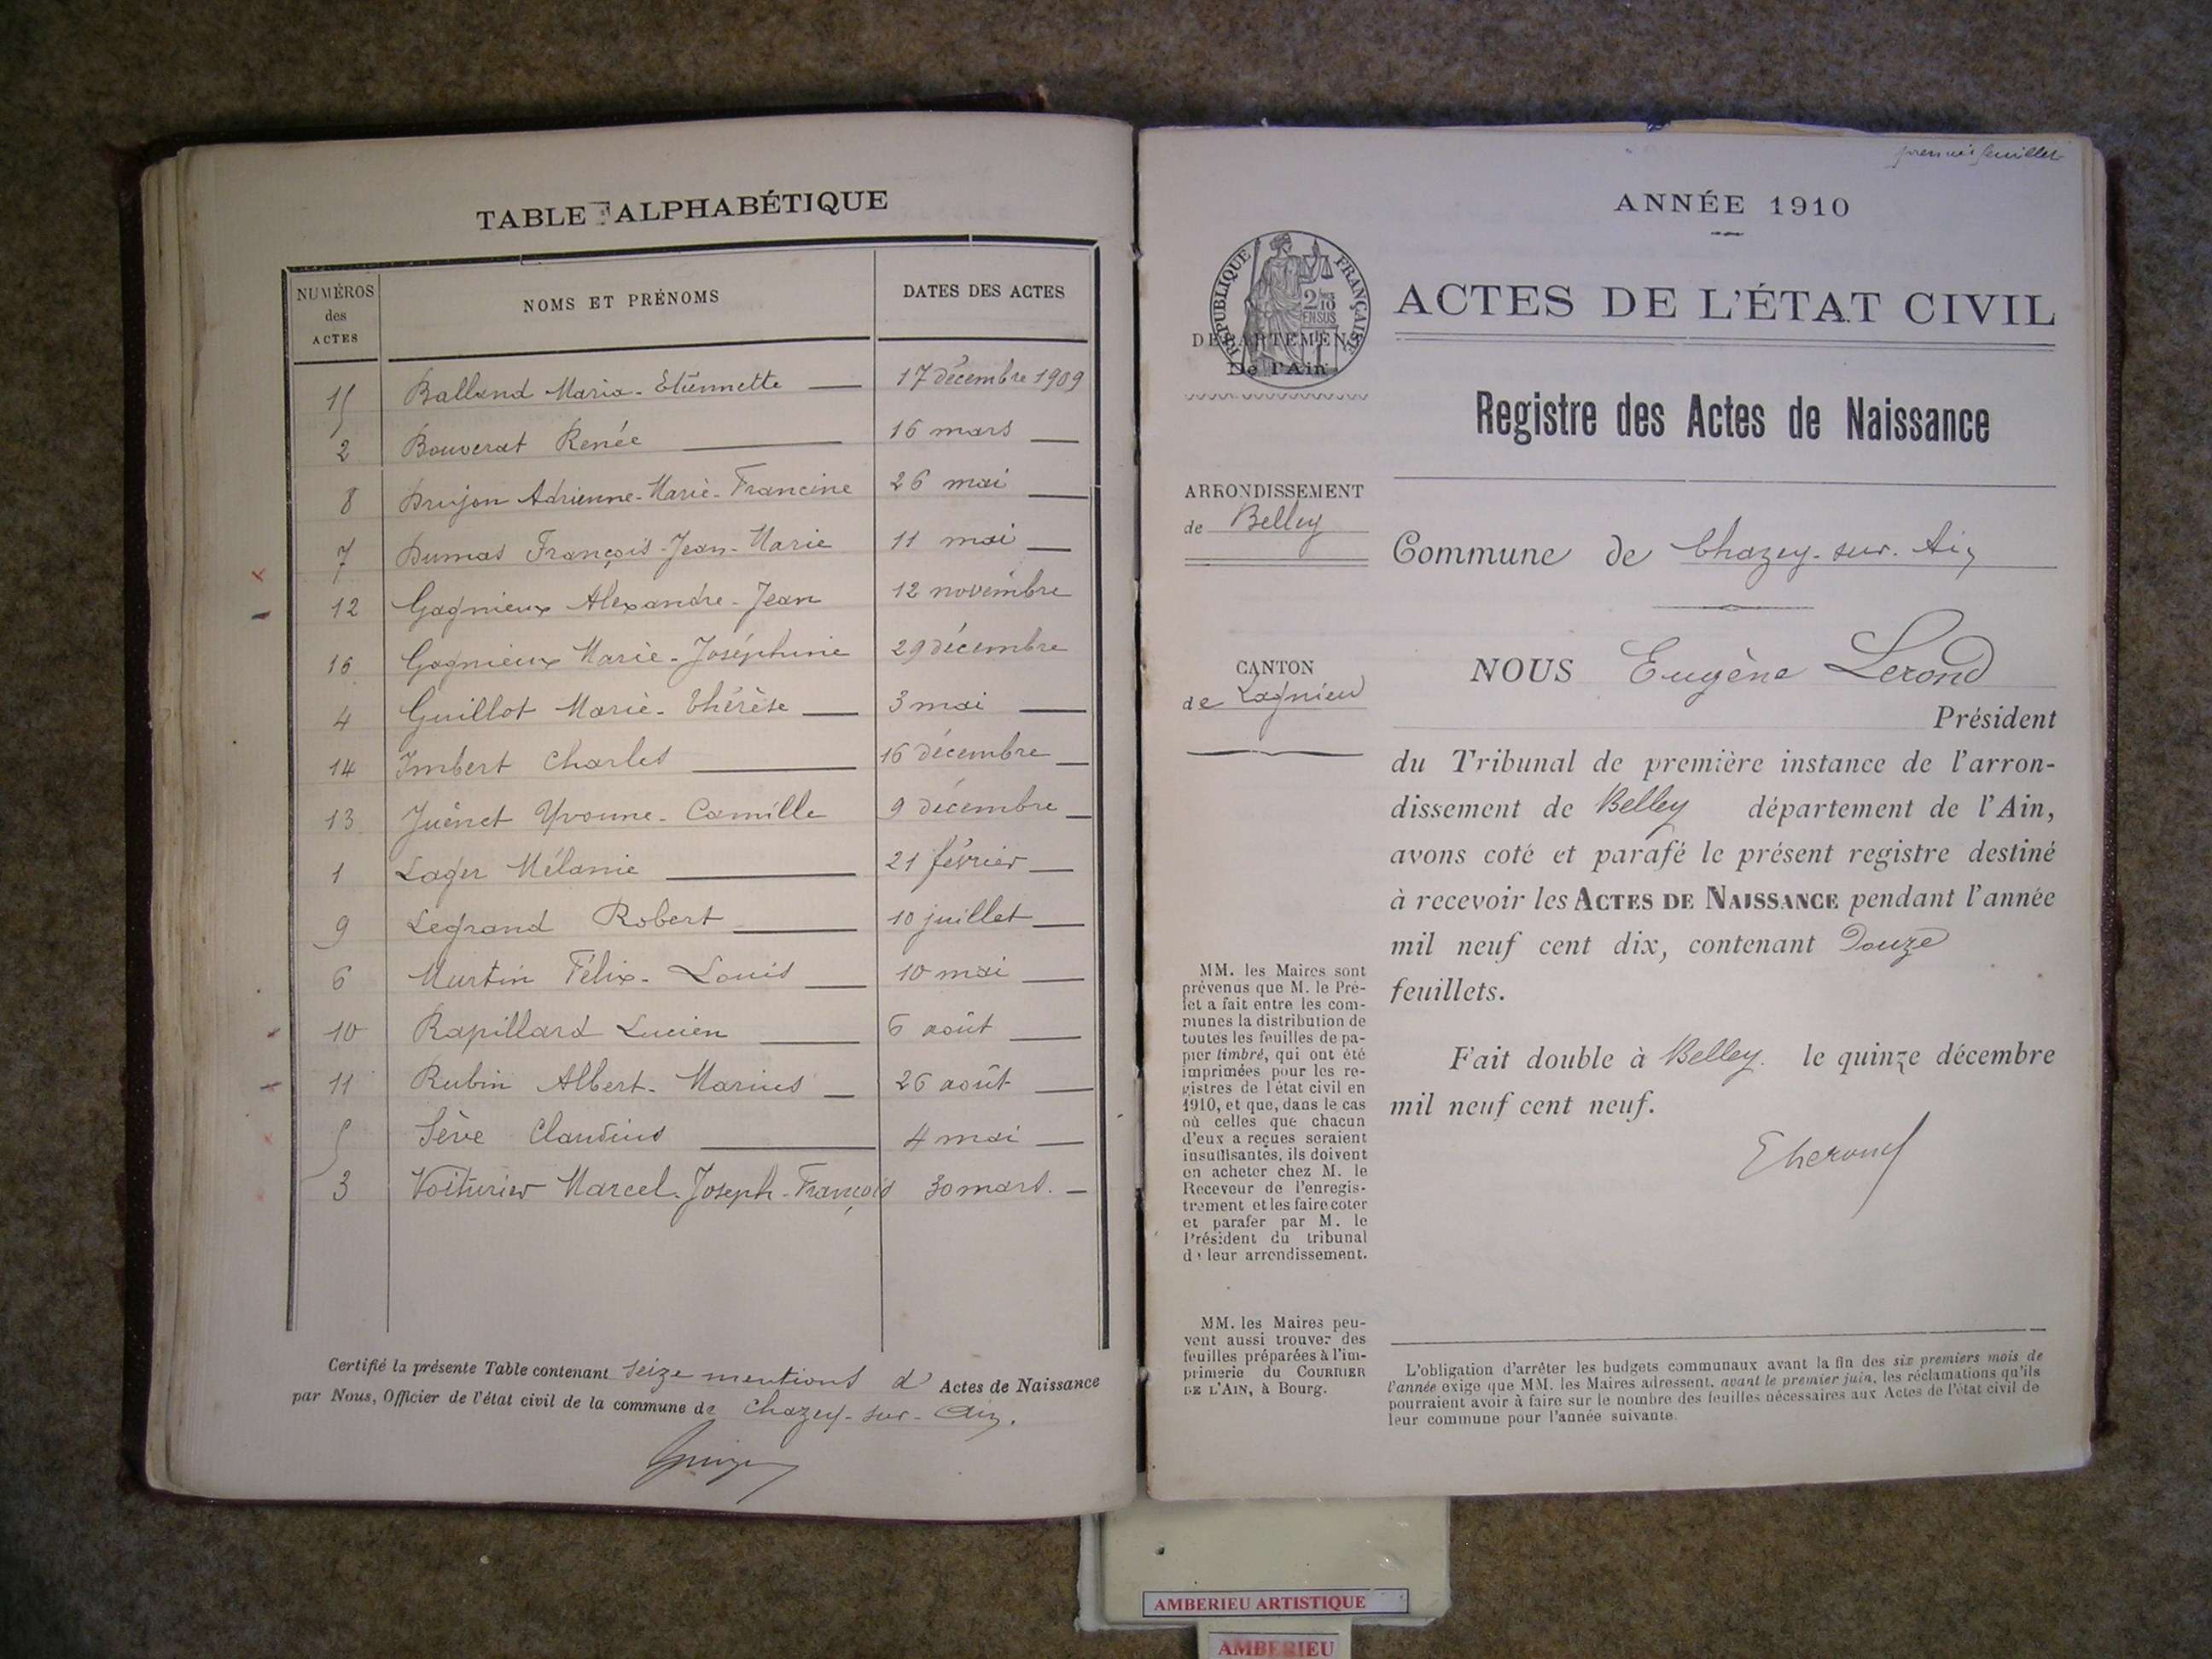 TABLE ALPHABÉTIQUE
NUMÉROS des ACTES NOMS ET PRÉNOMS DATES DES ACTES
15 Balland Maria-Etiennette 17 décembre 1909
2 Bouverat Renée 16 mars
8 Drujon Adrienne-Marie-Francine 26 mai
7 Dumas François-Jean-Marie 11 mai
12 Gagnieux Alexandre-Jean 12 novembre
16 Gagnieux Marie-Joséphine 29 décembre
4 Guillot Marie-Thérèse 3 mai
14 Imbert Charles 16 décembre
13 Juénet Yvonne-Camille 9 décembre
1 Lager Mélanie 21 février
9 Legrand Robert 10 juillet
6 Martin Félix-Louis 10 mai
10 Rapillard Lucien 6 août
11 Rubin Albert-Marius 26 août
5 Sève Claudius 4 mai
3 Voiturier Marcel-Joseph-François 30 mars.
Certifié la présente Table contenant seize mentions d' Actes de Naissance
par Nous, Officier de l'état civil de la commune de Chazey-sur-Ain.
premier feuillet
ANNÉE 1910
RÉPUBLIQUE FRANÇAISE
2/10 EN SUS
ACTES DE L'ÉTAT CIVIL
DÉPARTEMENT
De l'Ain
Registre des Actes de Naissance
ARRONDISSEMENT
de Belley
Commune de Chazey-sur-Ain
CANTON
de Lagnieu
NOUS Eugène Lerond
Président
du Tribunal de première instance de l'arron-
dissement de Belley département de l'Ain,
avons coté et parafé le présent registre destiné
à recevoir les ACTES DE NAISSANCE pendant l'année
mil neuf cent dix, contenant Douze
feuillets.
Fait double à Belley. le quinze décembre
mil neuf cent neuf.
ELerond
MM. les Maires sont
prévenus que M. le Pré-
fet a fait entre les com-
munes la distribution de
toutes les feuilles de pa-
pier timbré, qui ont été
imprimées pour les re-
gistres de l'état civil en
1910, et que, dans le cas
où celles que chacun
d'eux a reçues seraient
insuffisantes, ils doivent
en acheter chez M. le
Receveur de l'enregis-
trement et les faire coter
et parafer par M. le
Président du tribunal
de leur arrondissement.
MM. les Maires peu-
vent aussi trouver des
feuilles préparées à l'im-
primerie du COURRIER
DE L'AIN, à Bourg.
L'obligation d'arrêter les budgets communaux avant la fin des six premiers mois de
l'année exige que MM. les Maires adressent, avant le premier juin, les réclamations qu'ils
pourraient avoir à faire sur le nombre des feuilles nécessaires aux Actes de l'état civil de
leur commune pour l'année suivante.
AMBERIEU ARTISTIQUE
AMBERIEU